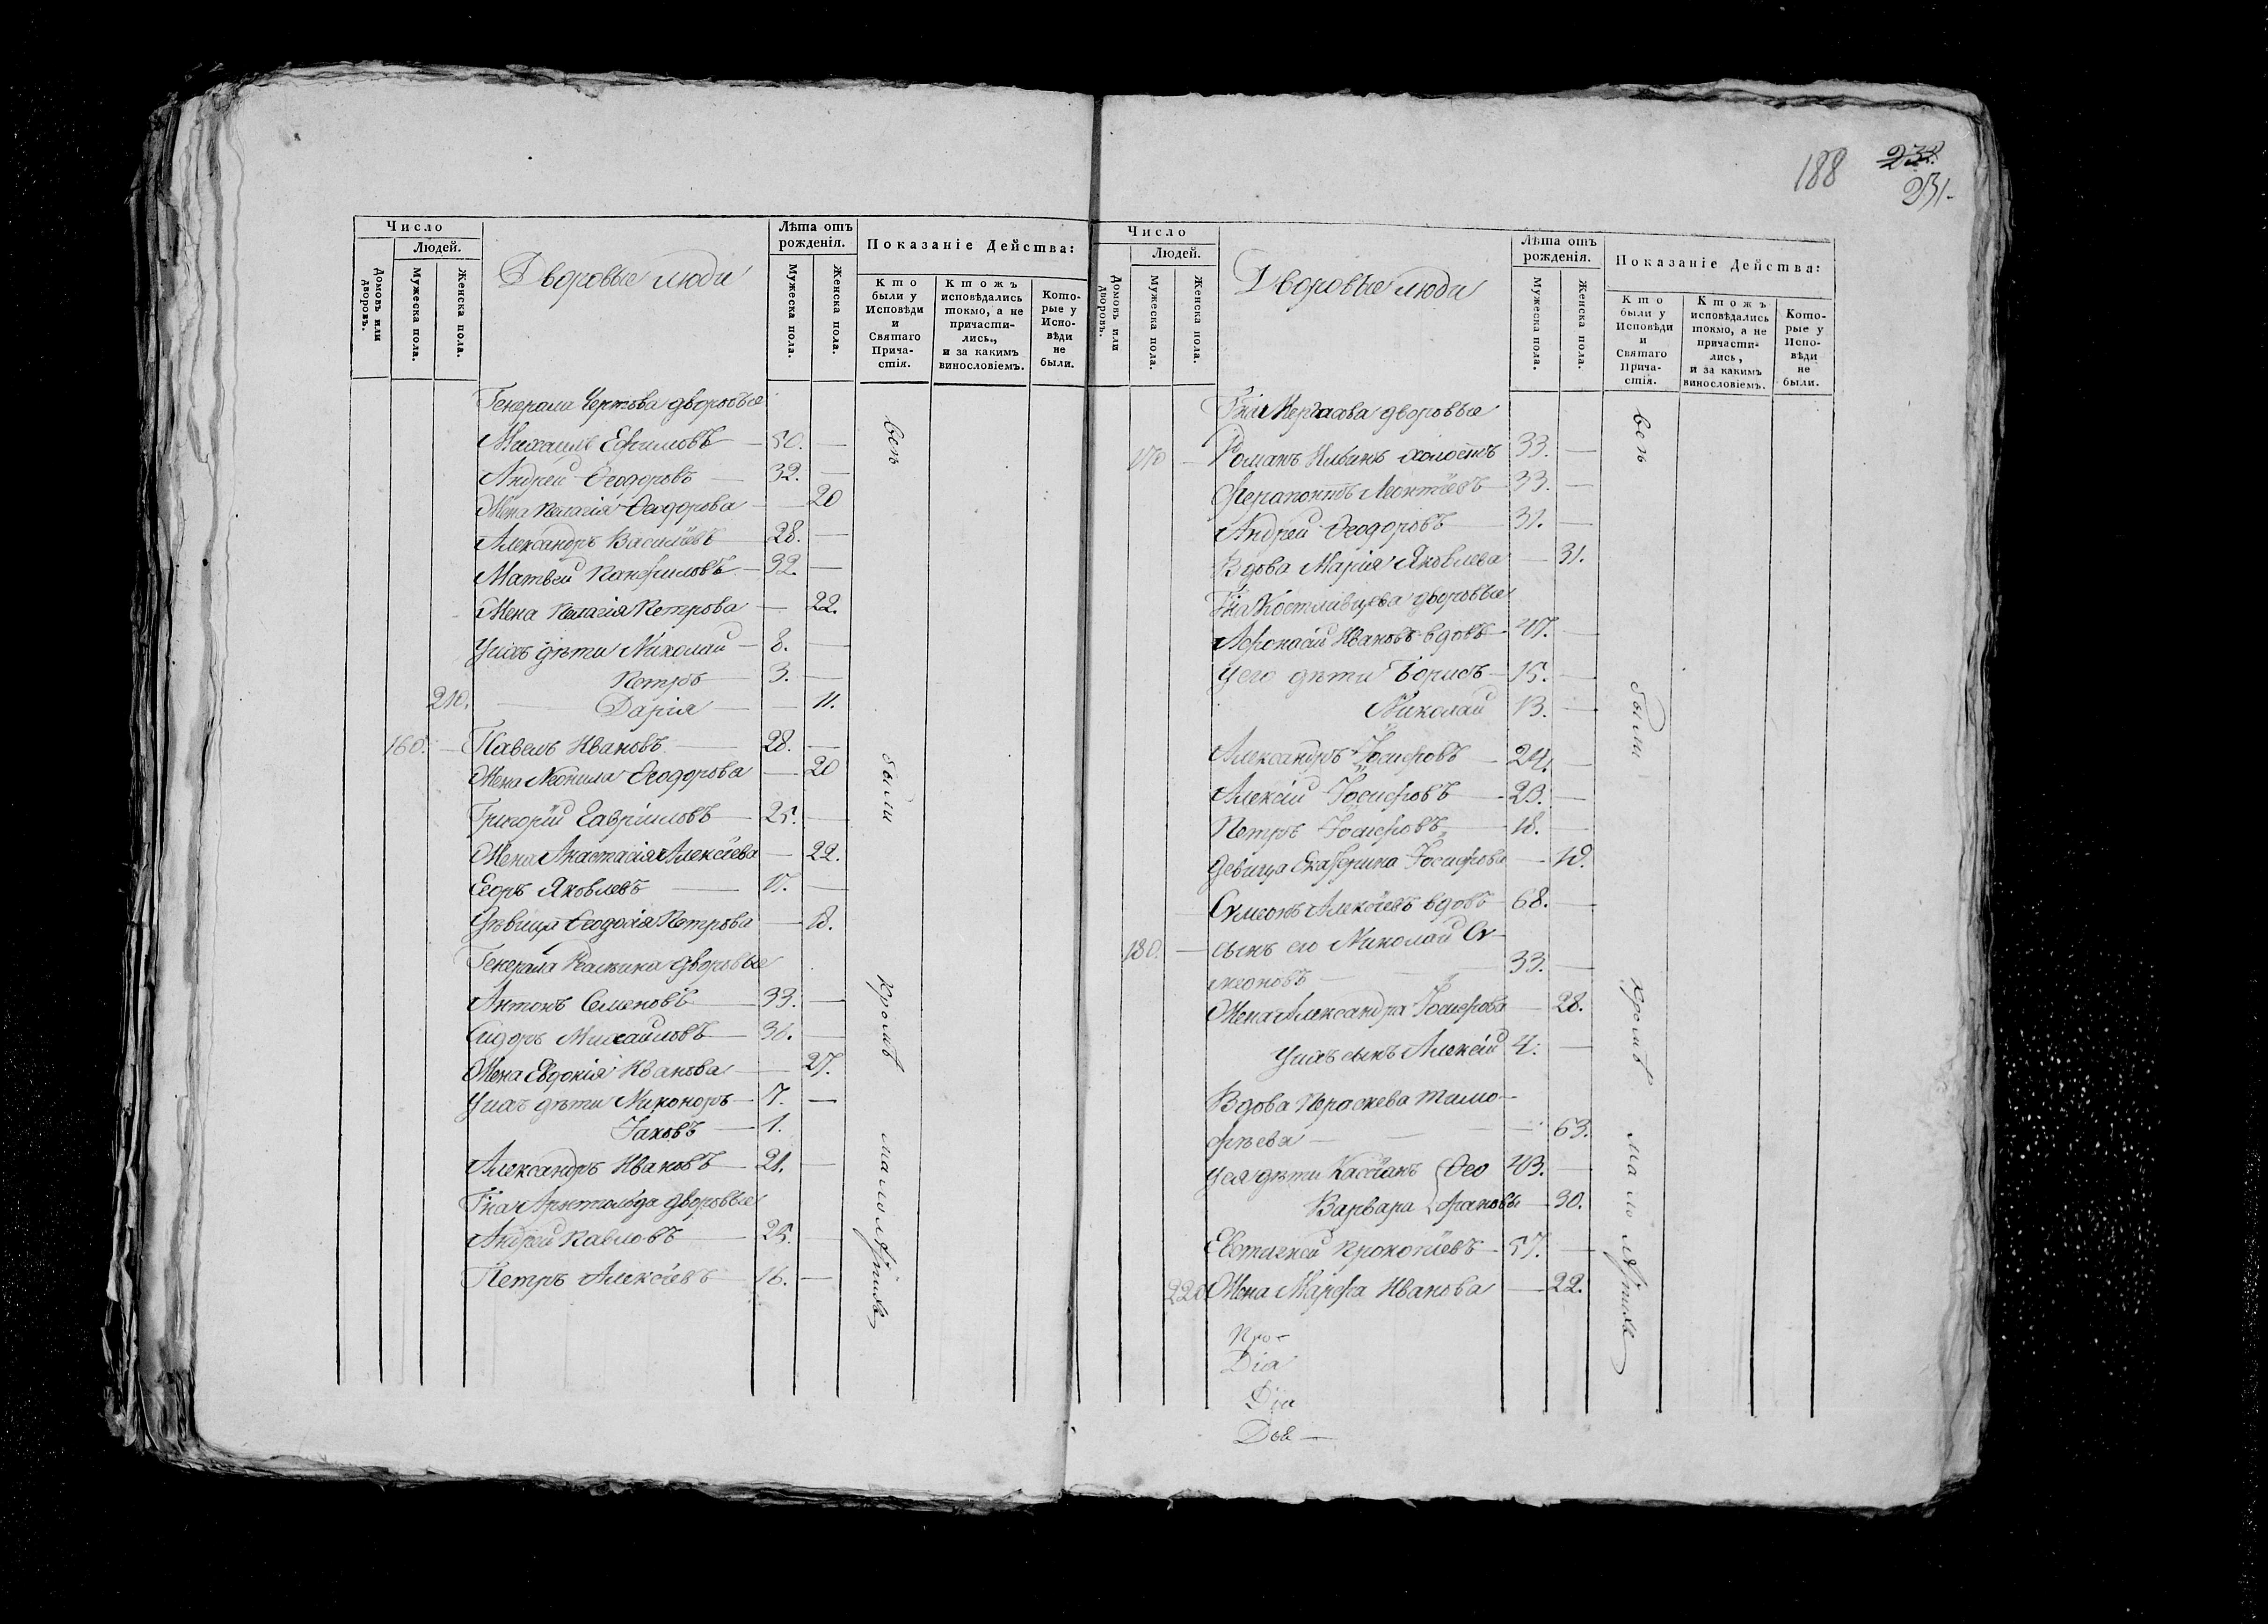 188 232.
231.
Число
Людей.
Домовъ или дворовъ.
Мужеска пола.
Женска пола.
Дворовые люди
Лѣта отъ рожденія.
Мужеска пола.
Женска пола.
Показаніе Действа:
Кто были у Исповѣди и Святаго Причастія.
Ктожъ исповѣдались токмо, а не причастились, и за какимъ винословіемъ.
Которые у Исповѣди не были.
Генерала Чертова дворовые
Михаилъ Ефимовъ — 50. —
Андрей Ѳеодоровъ — 32. —
Жена Пелагія Ѳеодорова — 20
Александръ Василіевъ 28. —
Матвей Панфиловъ — 32. —
Жена Пелагія Петрова — 22.
Уихъ дѣти Николай — 8. —
Петръ — 3. —
210. Дарія — 11.
160. — Павелъ Ивановъ — 28. —
Жена Неонила Ѳеодорова — 20
Григорій Гавріиловъ — 25. —
Жена Анастасія Алексіева — 22.
Егоръ Яковлевъ — 17. —
Дѣвица Ѳеодосія Петрова — 18.
Генерала дворовые
Антонъ Семеновъ — 33. —
Сидоръ Михаиловъ — 36. —
Жена Евдокія Иванова — 27.
Уихъ дѣти Никоноръ — 7. —
Іаковъ — 1.
Александръ Ивановъ — 21. —
Гна дворовые
Андрей Павловъ — 25. —
Петръ Алексіевъ 16. —
всѣ были кромѣ малолѣтных
Число
Людей.
Домовъ или дворовъ.
Мужеска пола.
Женска пола.
Дворовые люди
Лѣта отъ рожденія.
Мужеска пола.
Женска пола.
Показаніе Действа:
Кто были у Исповѣди и Святаго Причастія.
Ктожъ исповѣдались токмо, а не причастились, и за какимъ винословіемъ.
Которые у Исповѣди не были.
Гна дворовые
170 — Романъ Ильинъ холостъ 33. —
Ферапонтъ Леонтіевъ — 33. —
Андрей Ѳеодоровъ — 31. —
Вдова Марія Яковлева — 31.
Гна Костливцева дворовые
Афонасій Ивановъ вдовъ — 47. —
Уего дѣти Борисъ — 15. —
Николай 13. —
Александръ Іосифовъ — 24. —
Алексій Іосифовъ — 23. —
Петръ Іосифовъ — 18. —
Девица Екатерина Іосифова — 18.
Сѵмеонъ Алексіевъ вдовъ — 68. —
180. — сынъ его Николай Сѵ-
меоновъ — 33. —
Жена Александра Іосифова — 28.
Уихъ сынъ Алексій 4. —
Вдова Пераскева Тимо-
фѣева — 63.
Уея дѣти Кассіанъ { Ѳео 43. —
Варвара { фановы — 30.
Евстагней Прокопіевъ — 57. —
220 Жена Марфа Иванова — 22.
всѣ были кромѣ малолѣтных
Про-
Dia
Dia
Dob —